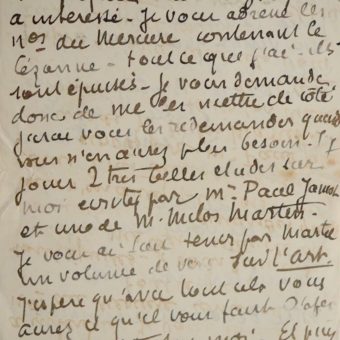 a intéressé - Je vous adresse les
nos du Mercure contenant le
Cézanne - tout ce que j'ai - ils
sont épuisés - Je vous demande
donc de me les mettre de côté
j'irai vous les redemander quand
vous n'en aurez plus besoin.
jours 2 très belles études sur
moi écrites par Mr Paul Jamot
et une de M. Milos Marten.
Je vous ai fait tenir par
un volume de vers sur l'art.
J'espère qu'avec tout cela vous
aurez ce qu'il vous faut
Et puis